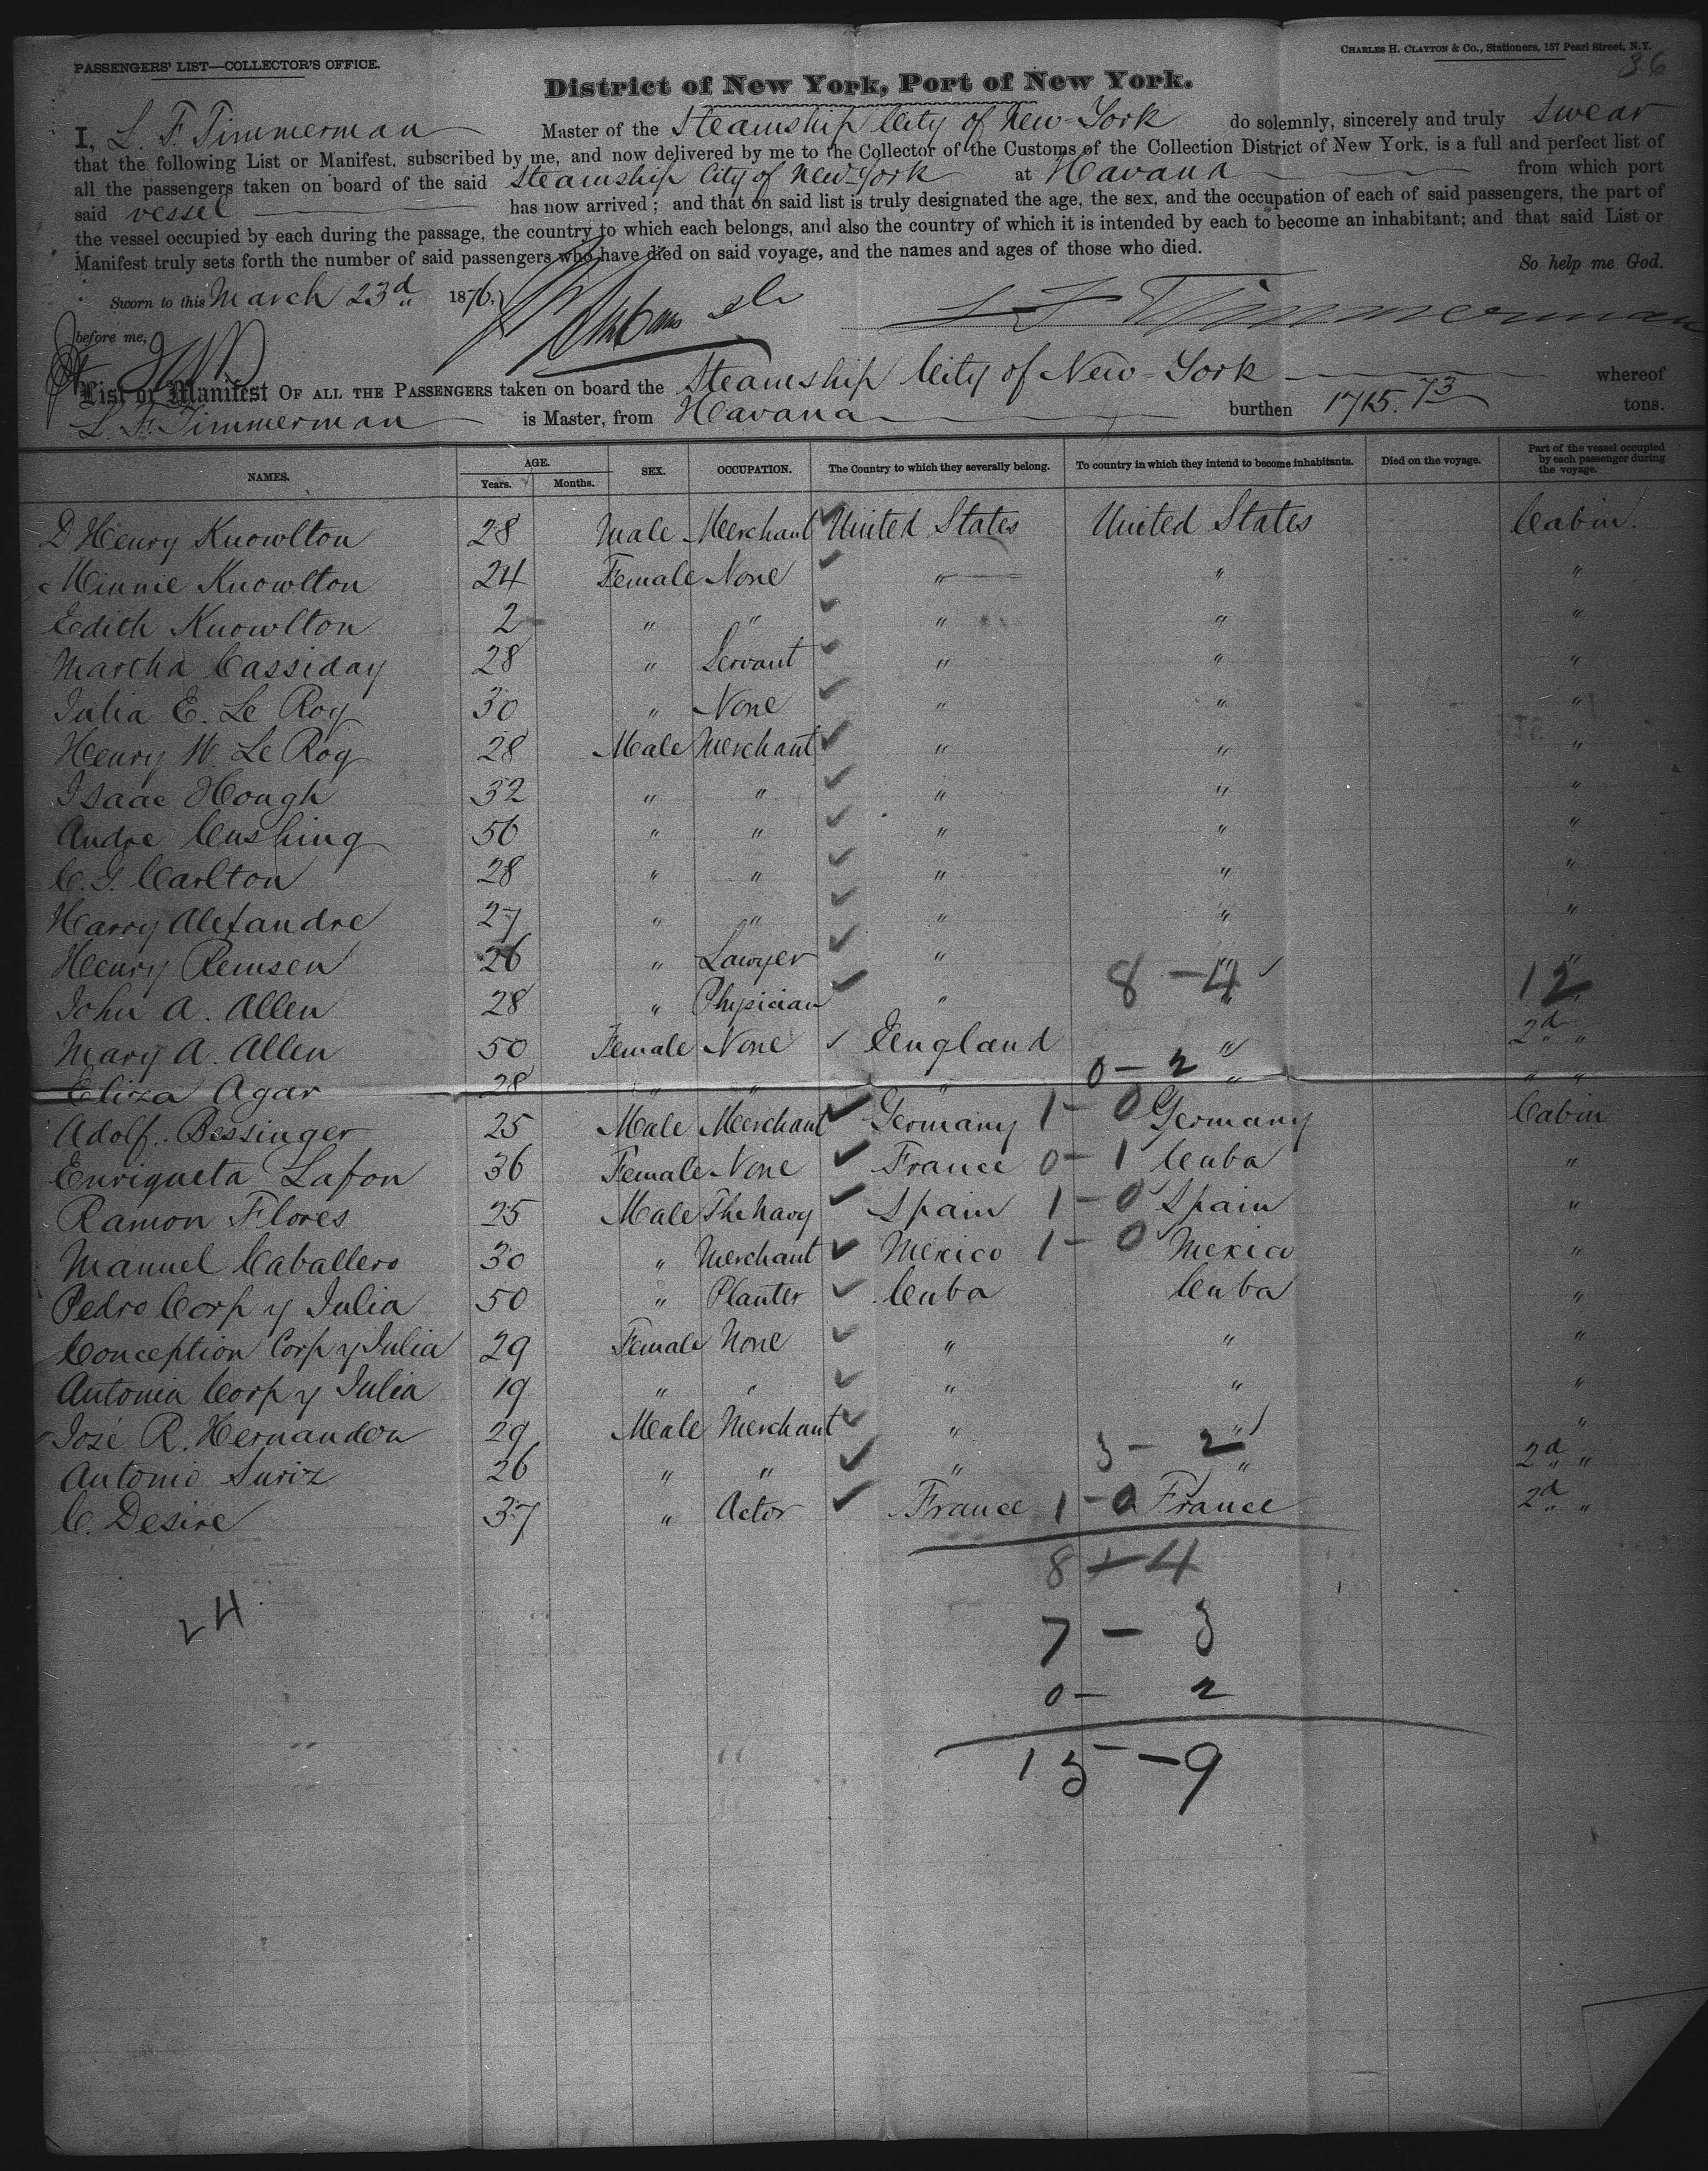 PASSENGERS' LIST—COLLECTOR'S OFFICE.
CHARLES H. CLAYTON & Co., Stationers, 157 Pearl Street, N.Y.
36
District of New York, Port of New York.
I, L. F. Timmerman Master of the Steamship City of New-York do solemnly, sincerely and truly swear
that the following List or Manifest, subscribed by me, and now delivered by me to the Collector of the Customs of the Collection District of New York, is a full and perfect list of
all the passengers taken on board of the said Steamship City of New-York at Havana from which port
said vessel has now arrived; and that on said list is truly designated the age, the sex, and the occupation of each of said passengers, the part of
the vessel occupied by each during the passage, the country to which each belongs, and also the country of which it is intended by each to become an inhabitant; and that said List or
Manifest truly sets forth the number of said passengers who have died on said voyage, and the names and ages of those who died.
So help me God.
Sworn to this March 23d 1876,
L F Timmerman
before me,
List or Manifest OF ALL THE PASSENGERS taken on board the Steamship City of New-York whereof
L. F. Timmerman is Master, from Havana burthen 1715.73 tons.
NAMES. AGE. Years. Months. SEX. OCCUPATION. The Country to which they severally belong. To country in which they intend to become inhabitants. Died on the voyage. Part of the vessel occupied by each passenger during the voyage.
D Henry Knowlton 28 Male Merchant United States United States Cabin.
Minnie Knowlton 24 Female None " " "
Edith Knowlton 2 " " " " "
Martha Cassiday 28 " Servant " " "
Julia E. Le Roy 30 " None " " "
Henry W. Le Roy 28 Male Merchant " " "
Isaac Hough 32 " " " " "
Andre Cushing 56 " " " " "
C. G. Carlton 28 " " " " "
Harry Alexandre 27 " " " " "
Henry Remsen 26 " Lawyer " " "
John A. Allen 28 " Physician " 8 - 4 " 12 "
Mary A. Allen 50 Female None England " 2d "
Eliza Agar 28 " " " 0 - 2 " " "
Adolf. Bessinger 25 Male Merchant Germany 1 - 0 Germany Cabin
Enriqueta Lafon 36 Female None France 0 - 1 Cuba "
Ramon Flores 25 Male The Navy Spain 1 - 0 Spain "
Manuel Caballero 30 " Merchant Mexico 1 - 0 Mexico "
Pedro Corp y Julia 50 " Planter Cuba Cuba "
Conception Corp y Julia 29 Female None " " "
Antonia Corp y Julia 19 " " " " "
José R. Hernandon 29 Male Merchant " " "
Antonio Suriz 26 " " " 3 - 2 " 2d "
C. Desire 37 " Actor France 1 - 0 France 2d "
8 + 4
24
7 - 3
0 - 2
15 - 9